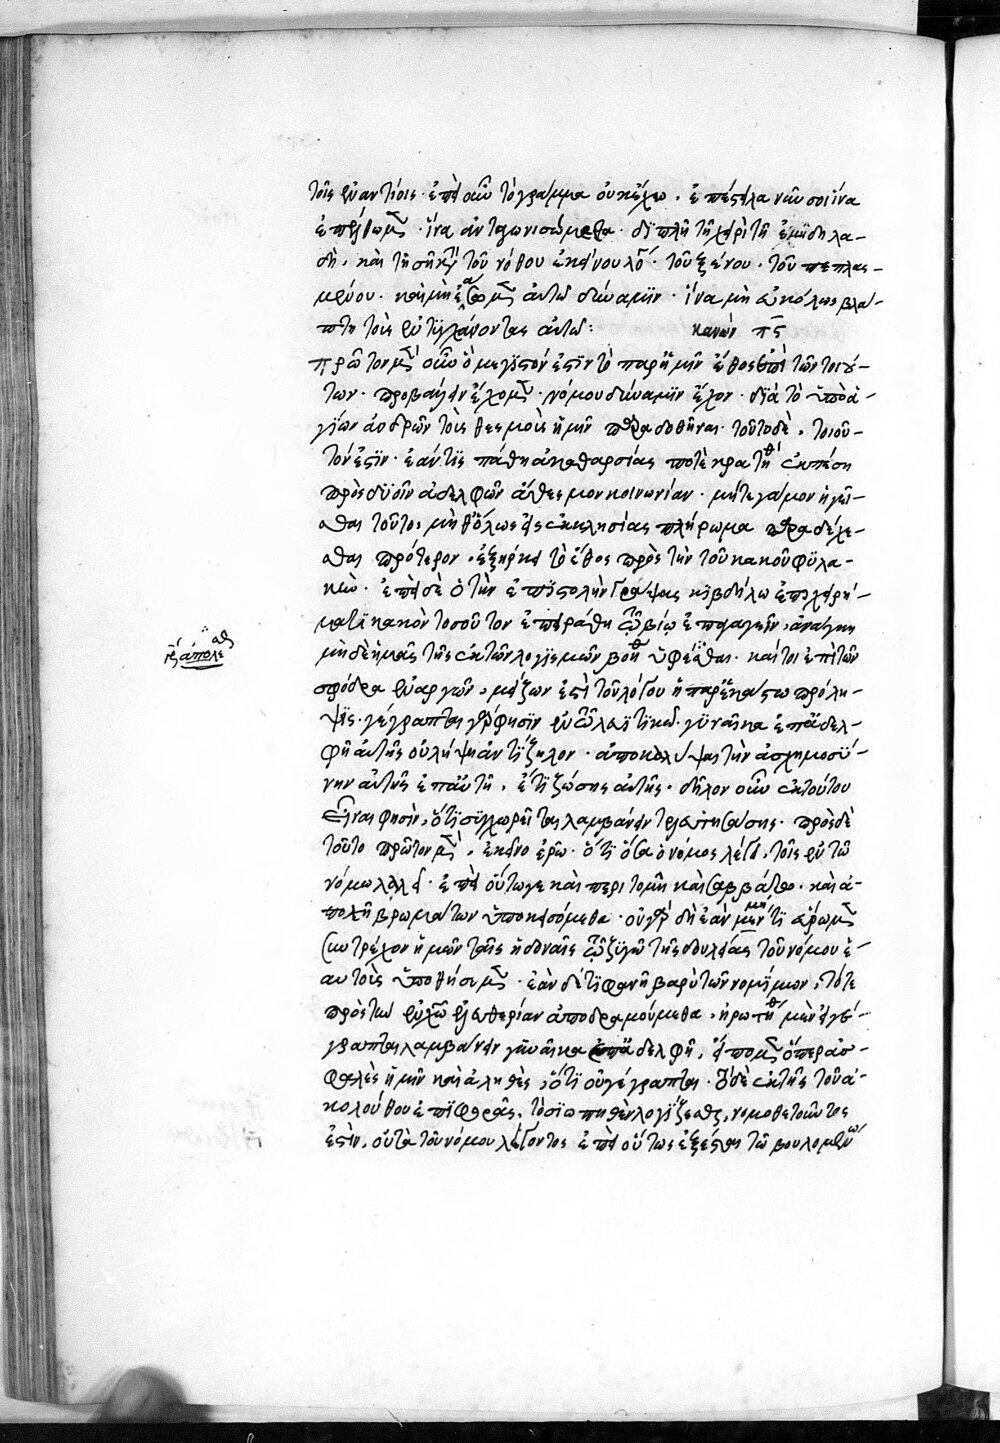 τοῖς ἐναντίοις· ἐπεὶ οὖν τὸ γράμμα οὐκ ἔχω. ἐπέστειλα νῦν σοι ἵνα
ἵνα ἀνταγωνισώμεθα· διπλῇ τῇ χειρὶ τῇ ἐμῇ δηλα-
δὴ, καὶ τῇ σῇ κ τοῦ νόθου ἐκείνου λό· τοῦ ξένου· τοῦ πεπλασ-
μένου· καὶ μὴ αὐτῶ δύναμιν· ἵνα μὴ εὐκόλως βλά-
πτη τοὺς ἐντυγχάνοντας αὐτῶ: κανὼν πς
πρῶτον μὲν οὖν ὃ μέγιστόν ἐστιν τὸ παρ' ἡμῖν ἔθος ἐπὶ τῶν τοιού-
των· προβάλλειν ἔχομεν· νόμου δύναμιν ἔχον· διὰ τὸ ὑπὸ ἁ-
γίων ἀνδρῶν τοὺς θεσμοὺς ἡμῖν παραδοθῆναι· τοῦτο δὲ, τοιοῦ-
τόν ἐστιν· ἐάν τις πάθη ἀκαθαρσίας ποτὲ κρατηθεὶς ἐκπέση
πρὸς δυοῖν ἀδελφῶν ἄθεσμον κοινωνίαν· μήτε γάμον ἡγεῖ-
σθαι τοῦτο, μὴθ' ὅλως εἰς ἐκκλησίας πλήρωμα παραδέχε-
σθαι πρότερον· ἐξήρκει τὸ ἔθος πρὸς τὴν τοῦ κακοῦ φυλα-
κὴν· ἐπεὶ δὲ ὁ τὴν ἐπιστολὴν γράψας κιβδήλω ἐπιχειρή-
ματι κακὸν τοσοῦτον ἐπειράθη τῶ βίω ἐπαγαγεῖν· ἀνάγκη
μηδὲ ἡμᾶς τῆς ἐκ τῶν λογισμῶν βοηθ ὑφεσθαι· καίτοι ἐπὶ τῶν
σφόδρα ἐναργῶν, μείζων ἐστὶ τοῦ λόγου ἡ παρ' ἑκάστω πρόλη-
ψις· γέγραπται γάρ φησιν ἐν τῶ λευϊτικῶ· γυναῖκα ἐπ' ἀδελ-
φῆ αὐτῆς οὐ λήψη ἀντίζηλον· ἀποκαλύψαι τὴν ἀσχημοσύ-
νην αὐτῆς ἐπ' αὐτῆ, ἔτι ζώσης αὐτῆς· δῆλον οὖν ἐκ τούτου
εἶναι φησὶν, ὅτι συγχωρεῖται λαμβάνειν τελευτησάσης· πρὸς δὲ
τοῦτο πρῶτον μὲν, ἐκεῖνο ἐρῶ· ὅτι ὅσα ὁ νόμος λέγει, τοῖς ἐν τῶ
νόμω λαλεῖ· ἐπεὶ οὕτωγε καὶ περιτομῆ καὶ σαββάτω· καὶ ἀ-
ποχῆ βρωμάτων ὑποκεισόμεθα· οὐ γὰρ δὴ ἐὰν μέν τι εὕρωμεν
συντρέχον ἡμῶν ταῖς ἡδοναῖς τῶ ζυγῶ τῆς δουλείας τοῦ νόμου ἑ-
αυτοὺς ὑποθήσομεν· ἐὰν δέ τι φανῆ βαρὺ τῶν νομίμων, τότε
πρὸς τὴν ἐν χῶ ἐλευθερίαν ἀποδραμούμεθα, ἠρωτήθημεν εἰ γέ-
γραπται λαμβάνειν γυναῖκα ἐπ' ἀδελφῆ, εἴπομεν ὅπερ ἀσ-
φαλὲς ἡμῖν καὶ ἀληθὲς, ὅτι οὐ γέγραπται· τὸ δὲ ἐκ τῆς τοῦ ἀ-
κολούθου ἐπιφορᾶς, τὸ σιωπηθὲν λογίζεσθαι, νομοθετοῦντος
ἐστὶν, οὐ τὰ τοῦ νόμου λέγοντος ἐπεὶ οὕτως ἐξέσται τῶ βουλομένω